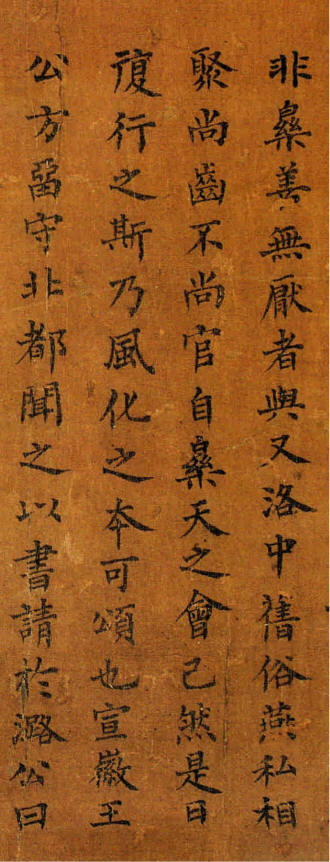 非樂善無厭者與又洛中舊俗燕私相
聚尚齒不尚官自樂天之會已然是日
復行之斯乃風化之夲可頌也宣徽王
公方留守北都聞之以書請於潞公曰